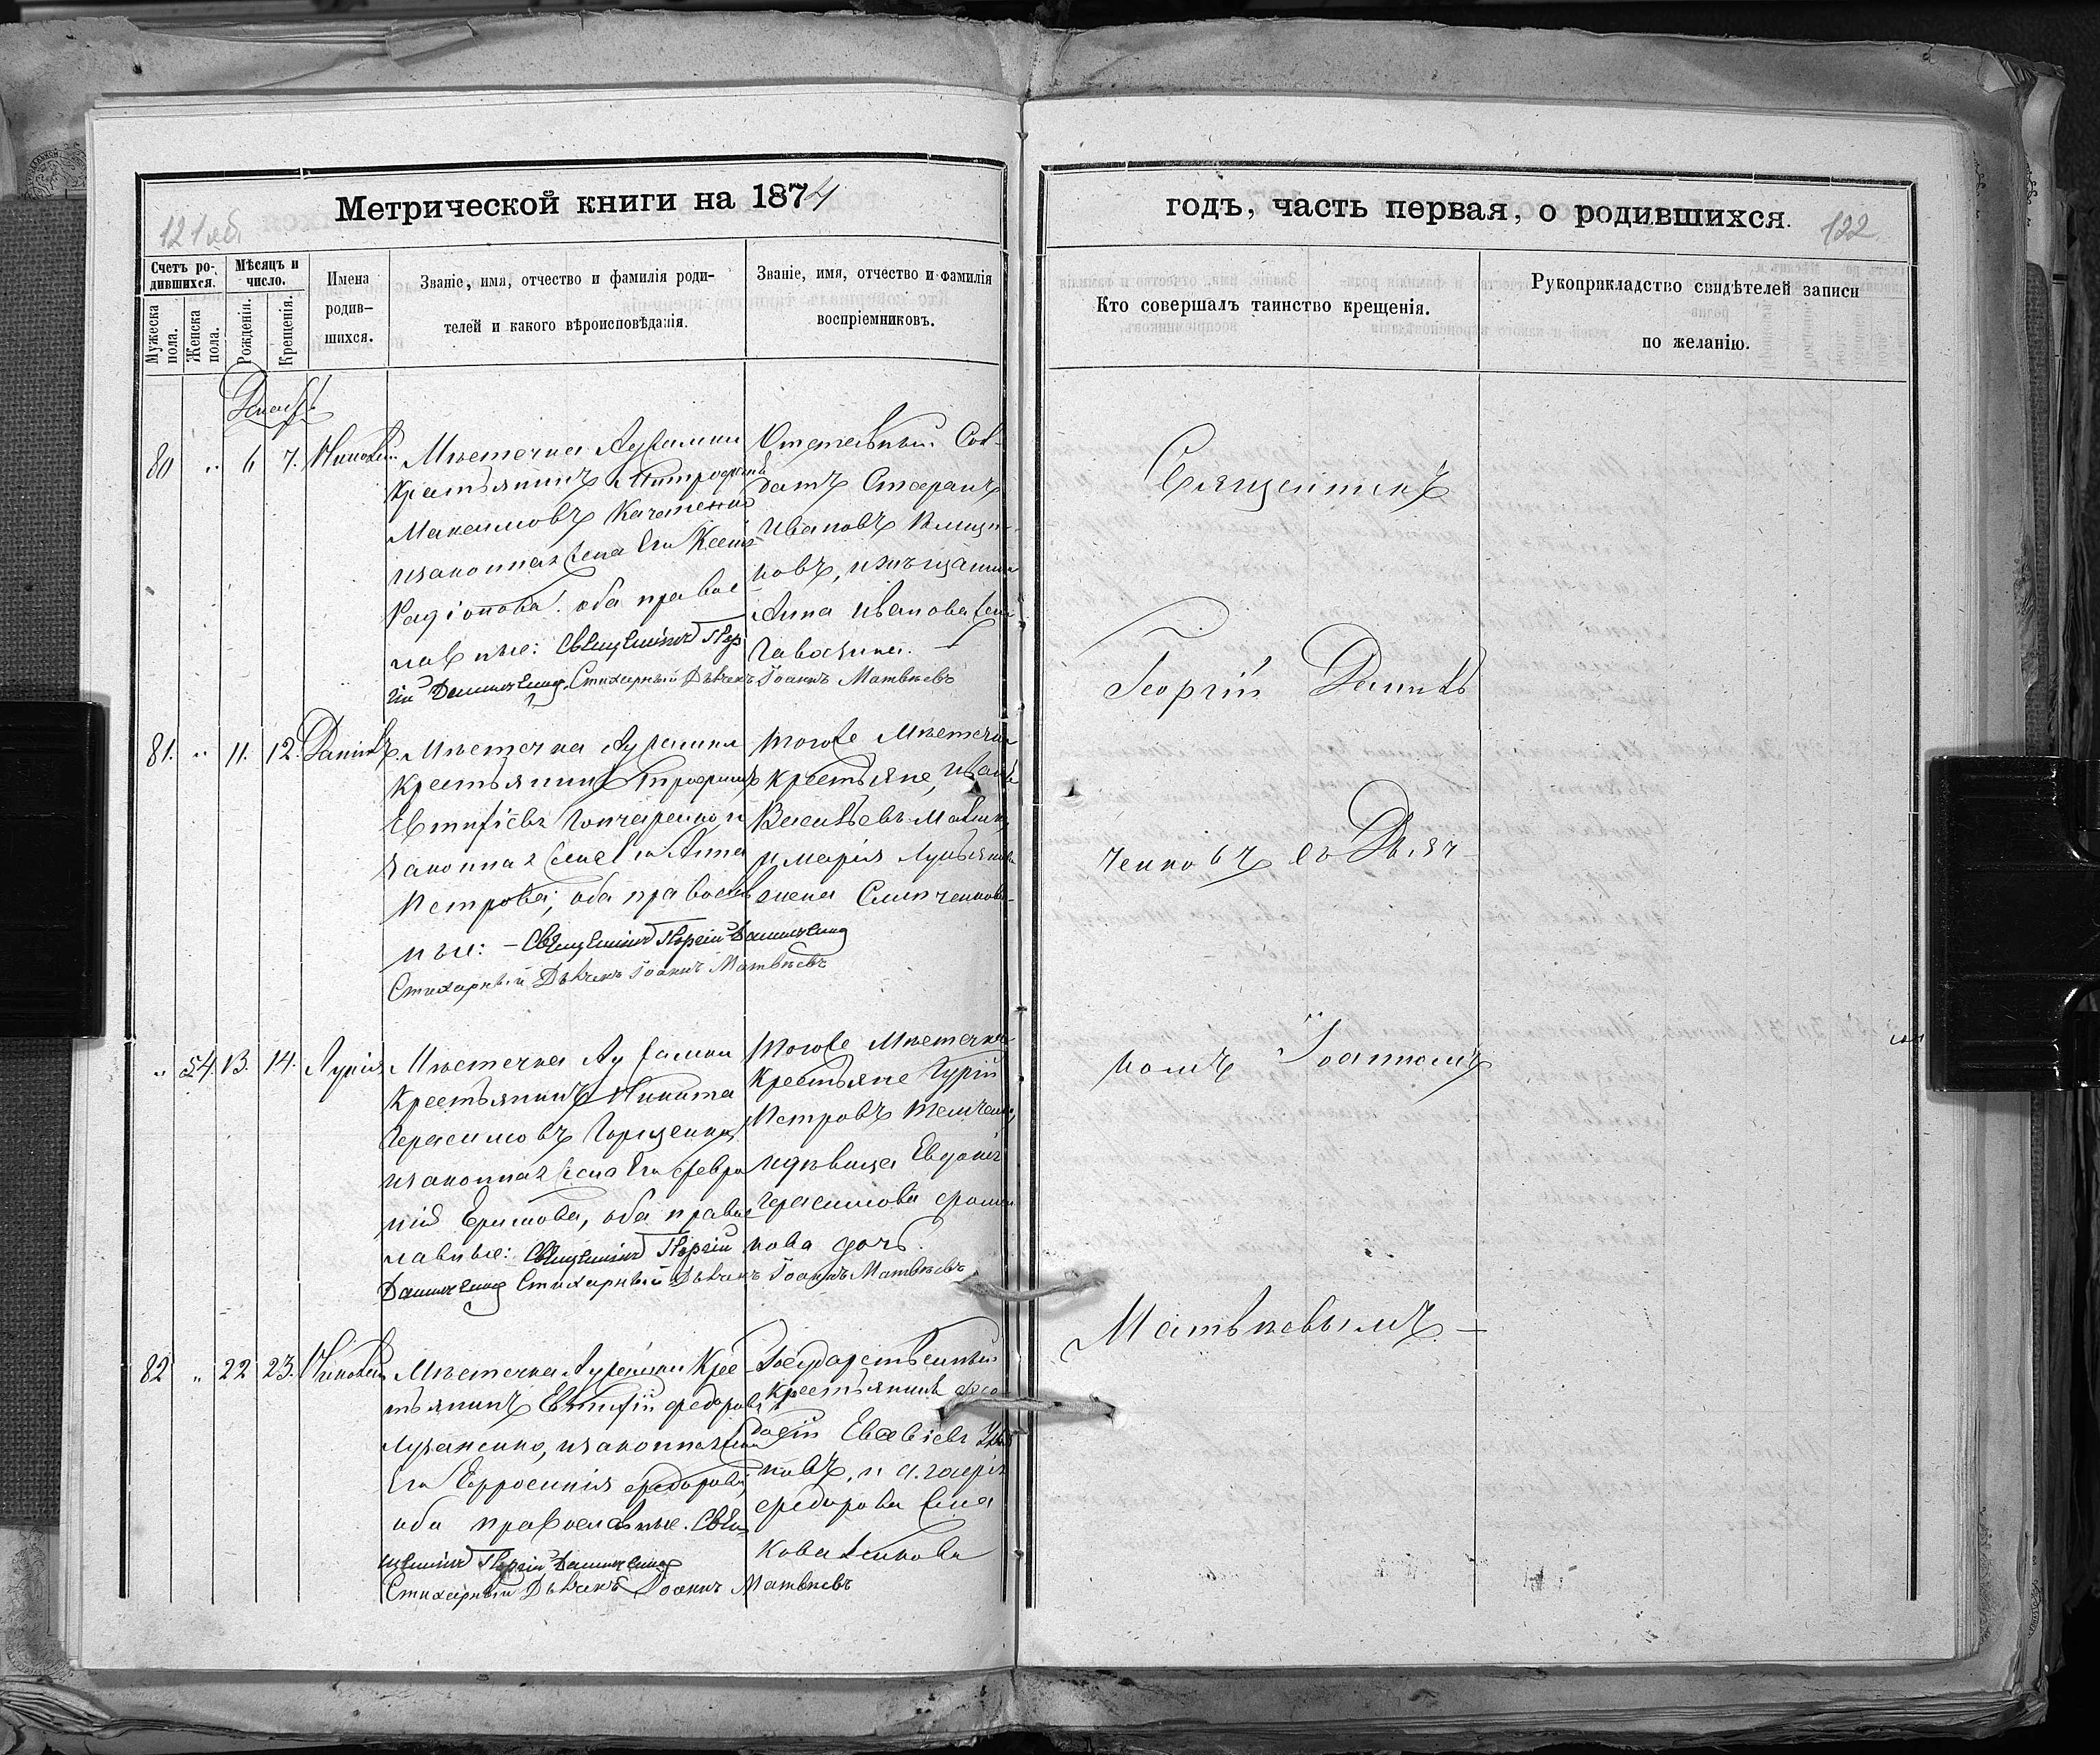 Метрической книги на 1874
121 об.
Счетъ ро-
дившихся.
Мужеска пола.
Женска пола.
Мѣсяцъ и
число.
Рожденія.
Крещенія.
Имена
родив-
шихся.
Званіе, имя, отчество и фамилія роди-
телей и какого вѣроисповѣданія.
Званіе, имя, отчество и фамилія
воспріемниковъ.
80 " 6 7. Николай.
Мѣстечка
Крестьянинъ Митрофанъ
Максимовъ
и законная жена Его
Радіонова: оба правос-
лавные: Священникъ Геор-
гій Данильченко Стихарный Дьячекъ Іоаннъ Матвѣевъ
Отставный Сол-
датъ Стефанъ
Ивановъ
новъ, и мѣщанина
Анна Иванова жена
81. " 11. 12. Даниилъ.
Мѣстечка
Крестьянинъ Трофимъ
Евтихіевъ Гончаренко, и
законная жена Его Анна
Петрова; оба православ
ные: – Священникъ Георгій Данильченко
Стихарный Дьячекъ Іоаннъ Матвѣевъ
тогоже Мѣстечка
крестьяне, Иванъ
Васильевъ
и Марія Лукьянова
жена
" 54. 13. 14. Лукія
Мѣстечка
Крестьянинъ Никита
Герасимовъ Горденко,
и законная жена Его Февро
нія Ефимова, оба правос
лавные: Священникъ Георгій
Данильченко Стихарный Дьячекъ Іоаннъ Матвѣевъ
тогоже Мѣстечка
Крестьяне Гурій
Петровъ
и дѣвица Евдокія
Герасимова
нова дочь.
82 " 22 23. Николай
Мѣстечка Крес-
тьянинъ Евтихій Федоровъ
Лузаненко, и законная жена
Его Евфросинія Федорова,
оба православные. Свя-
щенникъ Георгій Данильченко
Стихарный Дьячекъ Іоаннъ Матвѣевъ
Государственный
Крестьянинъ Фео-
досій Евсевіевъ
новъ, и
Федорова жена
Ковалекова
годъ, часть первая, о родившихся.
122
Кто совершалъ таинство крещенія.
Рукоприкладство свидѣтелей записи
по желанію.
Священникъ
Георгій Даниль
ченковъ съ Дьяч-
комъ Іоанномъ
Матвѣевымъ. –